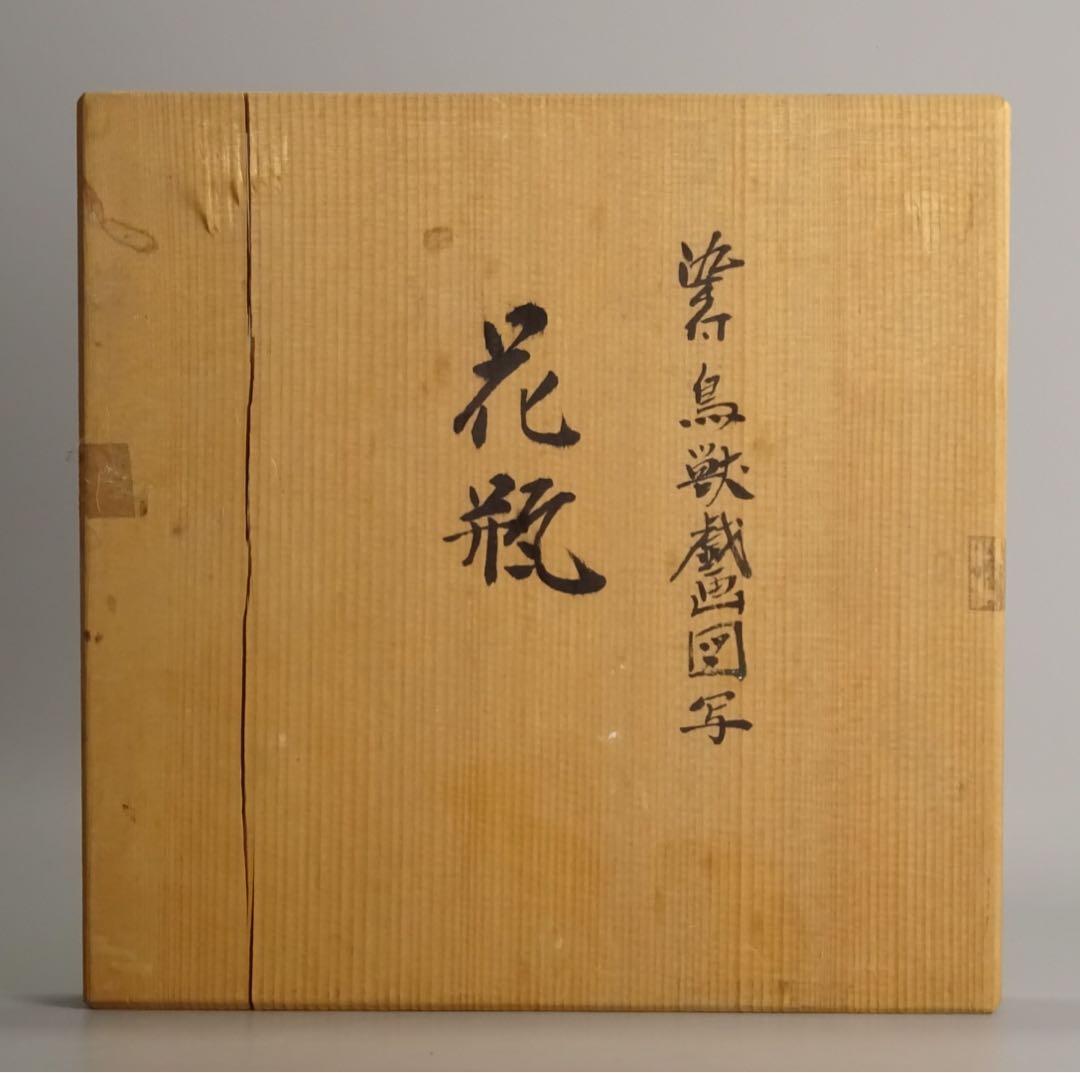 染付鳥獣戯画図写
花瓶